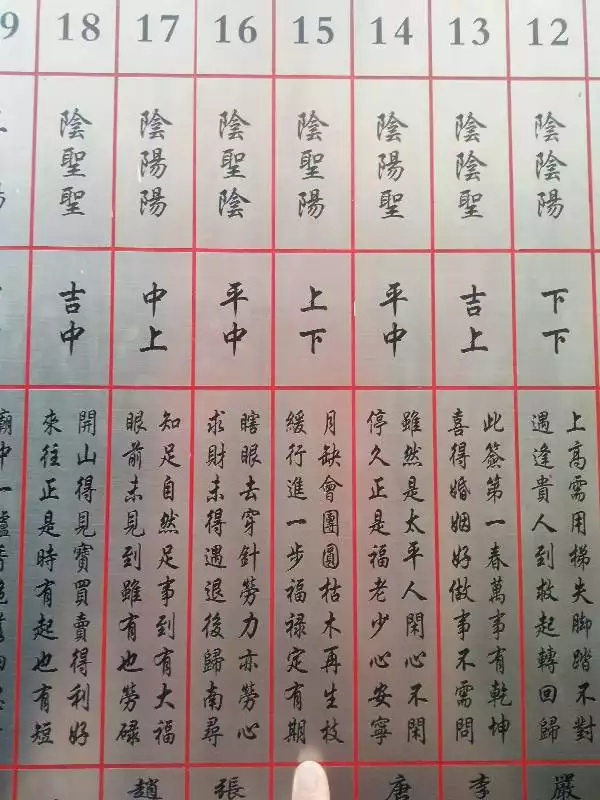 12
陰陰陽
下下
上高需用梯失脚踏不對
遇逢貴人到救起轉回歸
嚴
13
陰陰聖
吉上
此簽第一春萬事有乾坤
喜得婚姻好做事不需問
李
14
陰陽聖
平中
雖然是太平人閑心不閑
停久正是福老少心安寧
唐
15
陰聖陽
上下
月缺會團圓枯木再生枝
緩行進一步福禄定有期
16
陰聖陰
平中
瞎眼去穿針勞力亦勞心
求財未得遇退後歸南尋
張
17
陰陽陽
中上
知足自然足事到有大福
眼前未見到雖有也勞碌
趙
18
陰聖聖
吉中
開山得見寶買賣得利好
來往正是時有起也有短
9